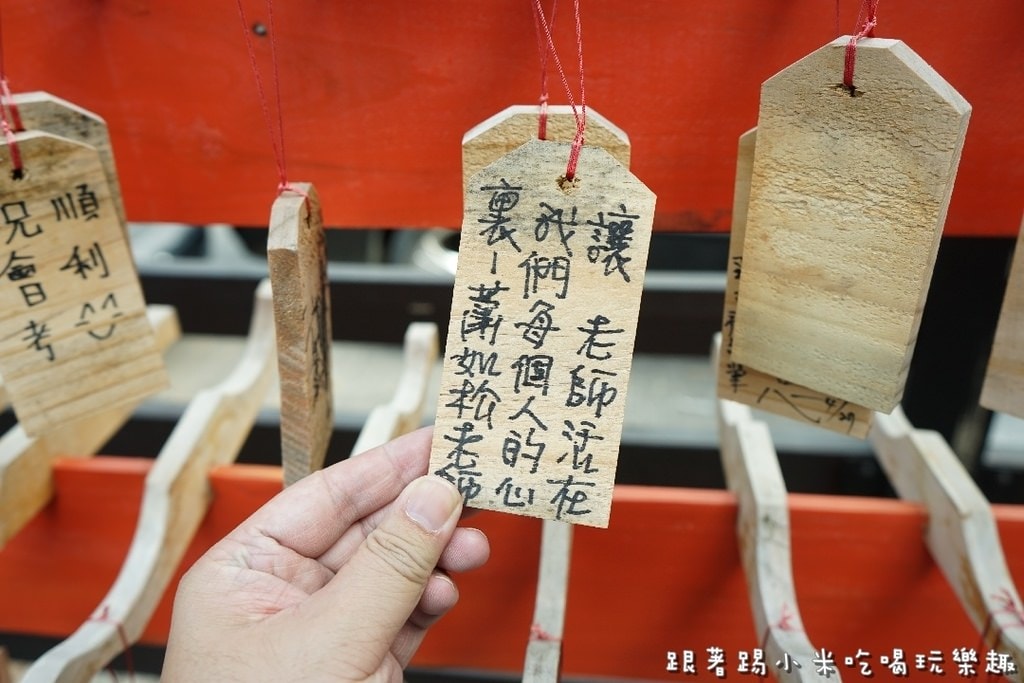 讓 老師活在
我們每個人的心
裏-蕭如松老師
順利
兄會考
4/29
跟著踢小米吃喝玩樂趣